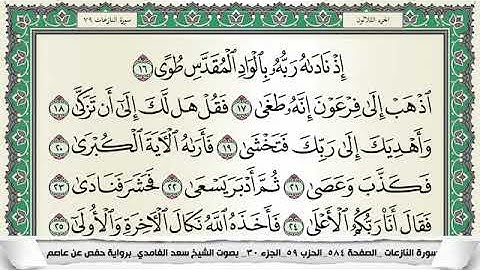 سورة النازعات ٧٩
الجزء الثلاثون
إِذْ نَادَىٰهُ رَبُّهُۥ بِٱلْوَادِ ٱلْمُقَدَّسِ طُوًى ١٦
ٱذْهَبْ إِلَىٰ فِرْعَوْنَ إِنَّهُۥ طَغَىٰ ١٧ فَقُلْ هَل لَّكَ إِلَىٰٓ أَن تَزَكَّىٰ ١٨
وَأَهْدِيَكَ إِلَىٰ رَبِّكَ فَتَخْشَىٰ ١٩ فَأَرَىٰهُ ٱلْـَٔايَةَ ٱلْكُبْرَىٰ ٢٠
فَكَذَّبَ وَعَصَىٰ ٢١ ثُمَّ أَدْبَرَ يَسْعَىٰ ٢٢ فَحَشَرَ فَنَادَىٰ ٢٣
فَقَالَ أَنَا۠ رَبُّكُمُ ٱلْأَعْلَىٰ ٢٤ فَأَخَذَهُ ٱللَّهُ نَكَالَ ٱلْـَٔاخِرَةِ وَٱلْأُولَىٰٓ ٢٥
سورة النازعات _الصفحة ٥٨٤_ الحزب ٥٩_ الجزء ٣٠_ بصوت الشيخ سعد الغامدي_ برواية حفص عن عاصم